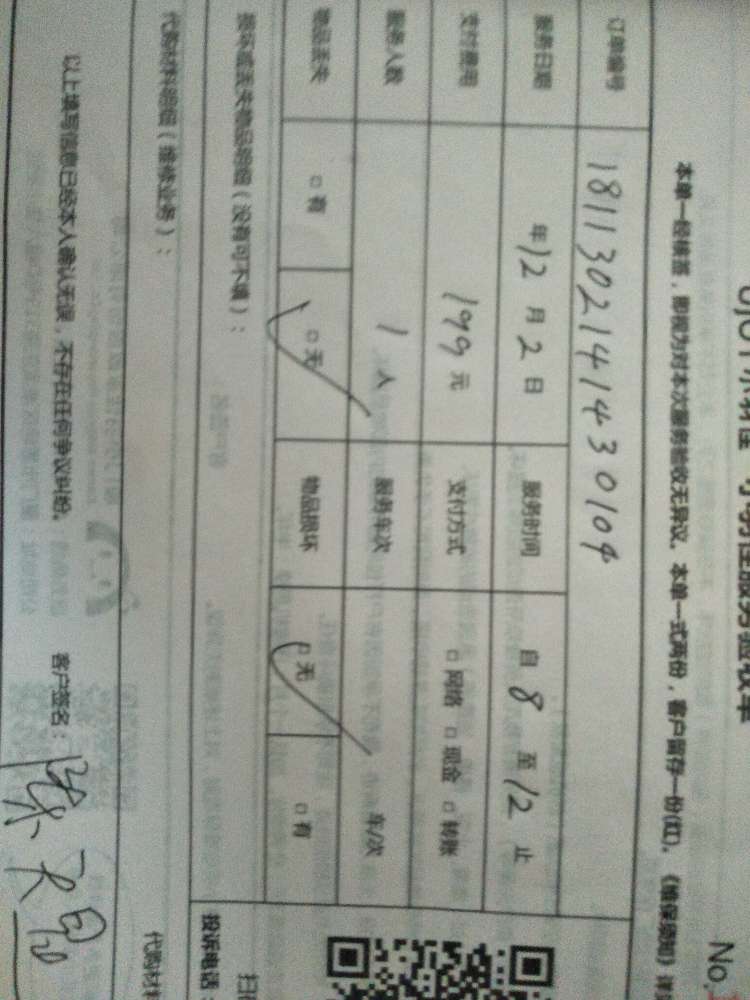 No.
本单一经签签，即视为对本次服务验收无异议。本单一式两份，客户留存一份(红)。《维保须知》
订单编号 1811302141430104
服务日期 年12月2日 服务时间 自8至12止
支付费用 199元 支付方式 □网络 □现金 □转账
服务人数 1人 服务车次 车/次
物品丢失 □有 □无 物品损坏 □无 □有
损坏或丢失物品明细（没有可不填）：
投诉电话：
代购材料明细（维修业务）：
以上填写信息已经本人确认无误，不存在任何争议纠纷。 客户签名：